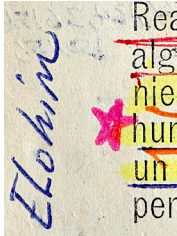 Elohim
Rea
alg
nie
hun
un
per